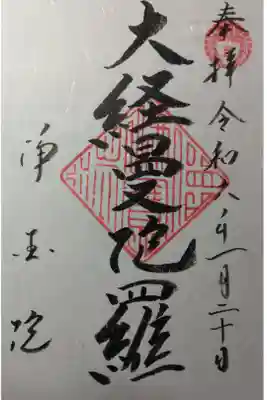 奉拝 令和六年一月二十日
大経曼陀羅
浄土院